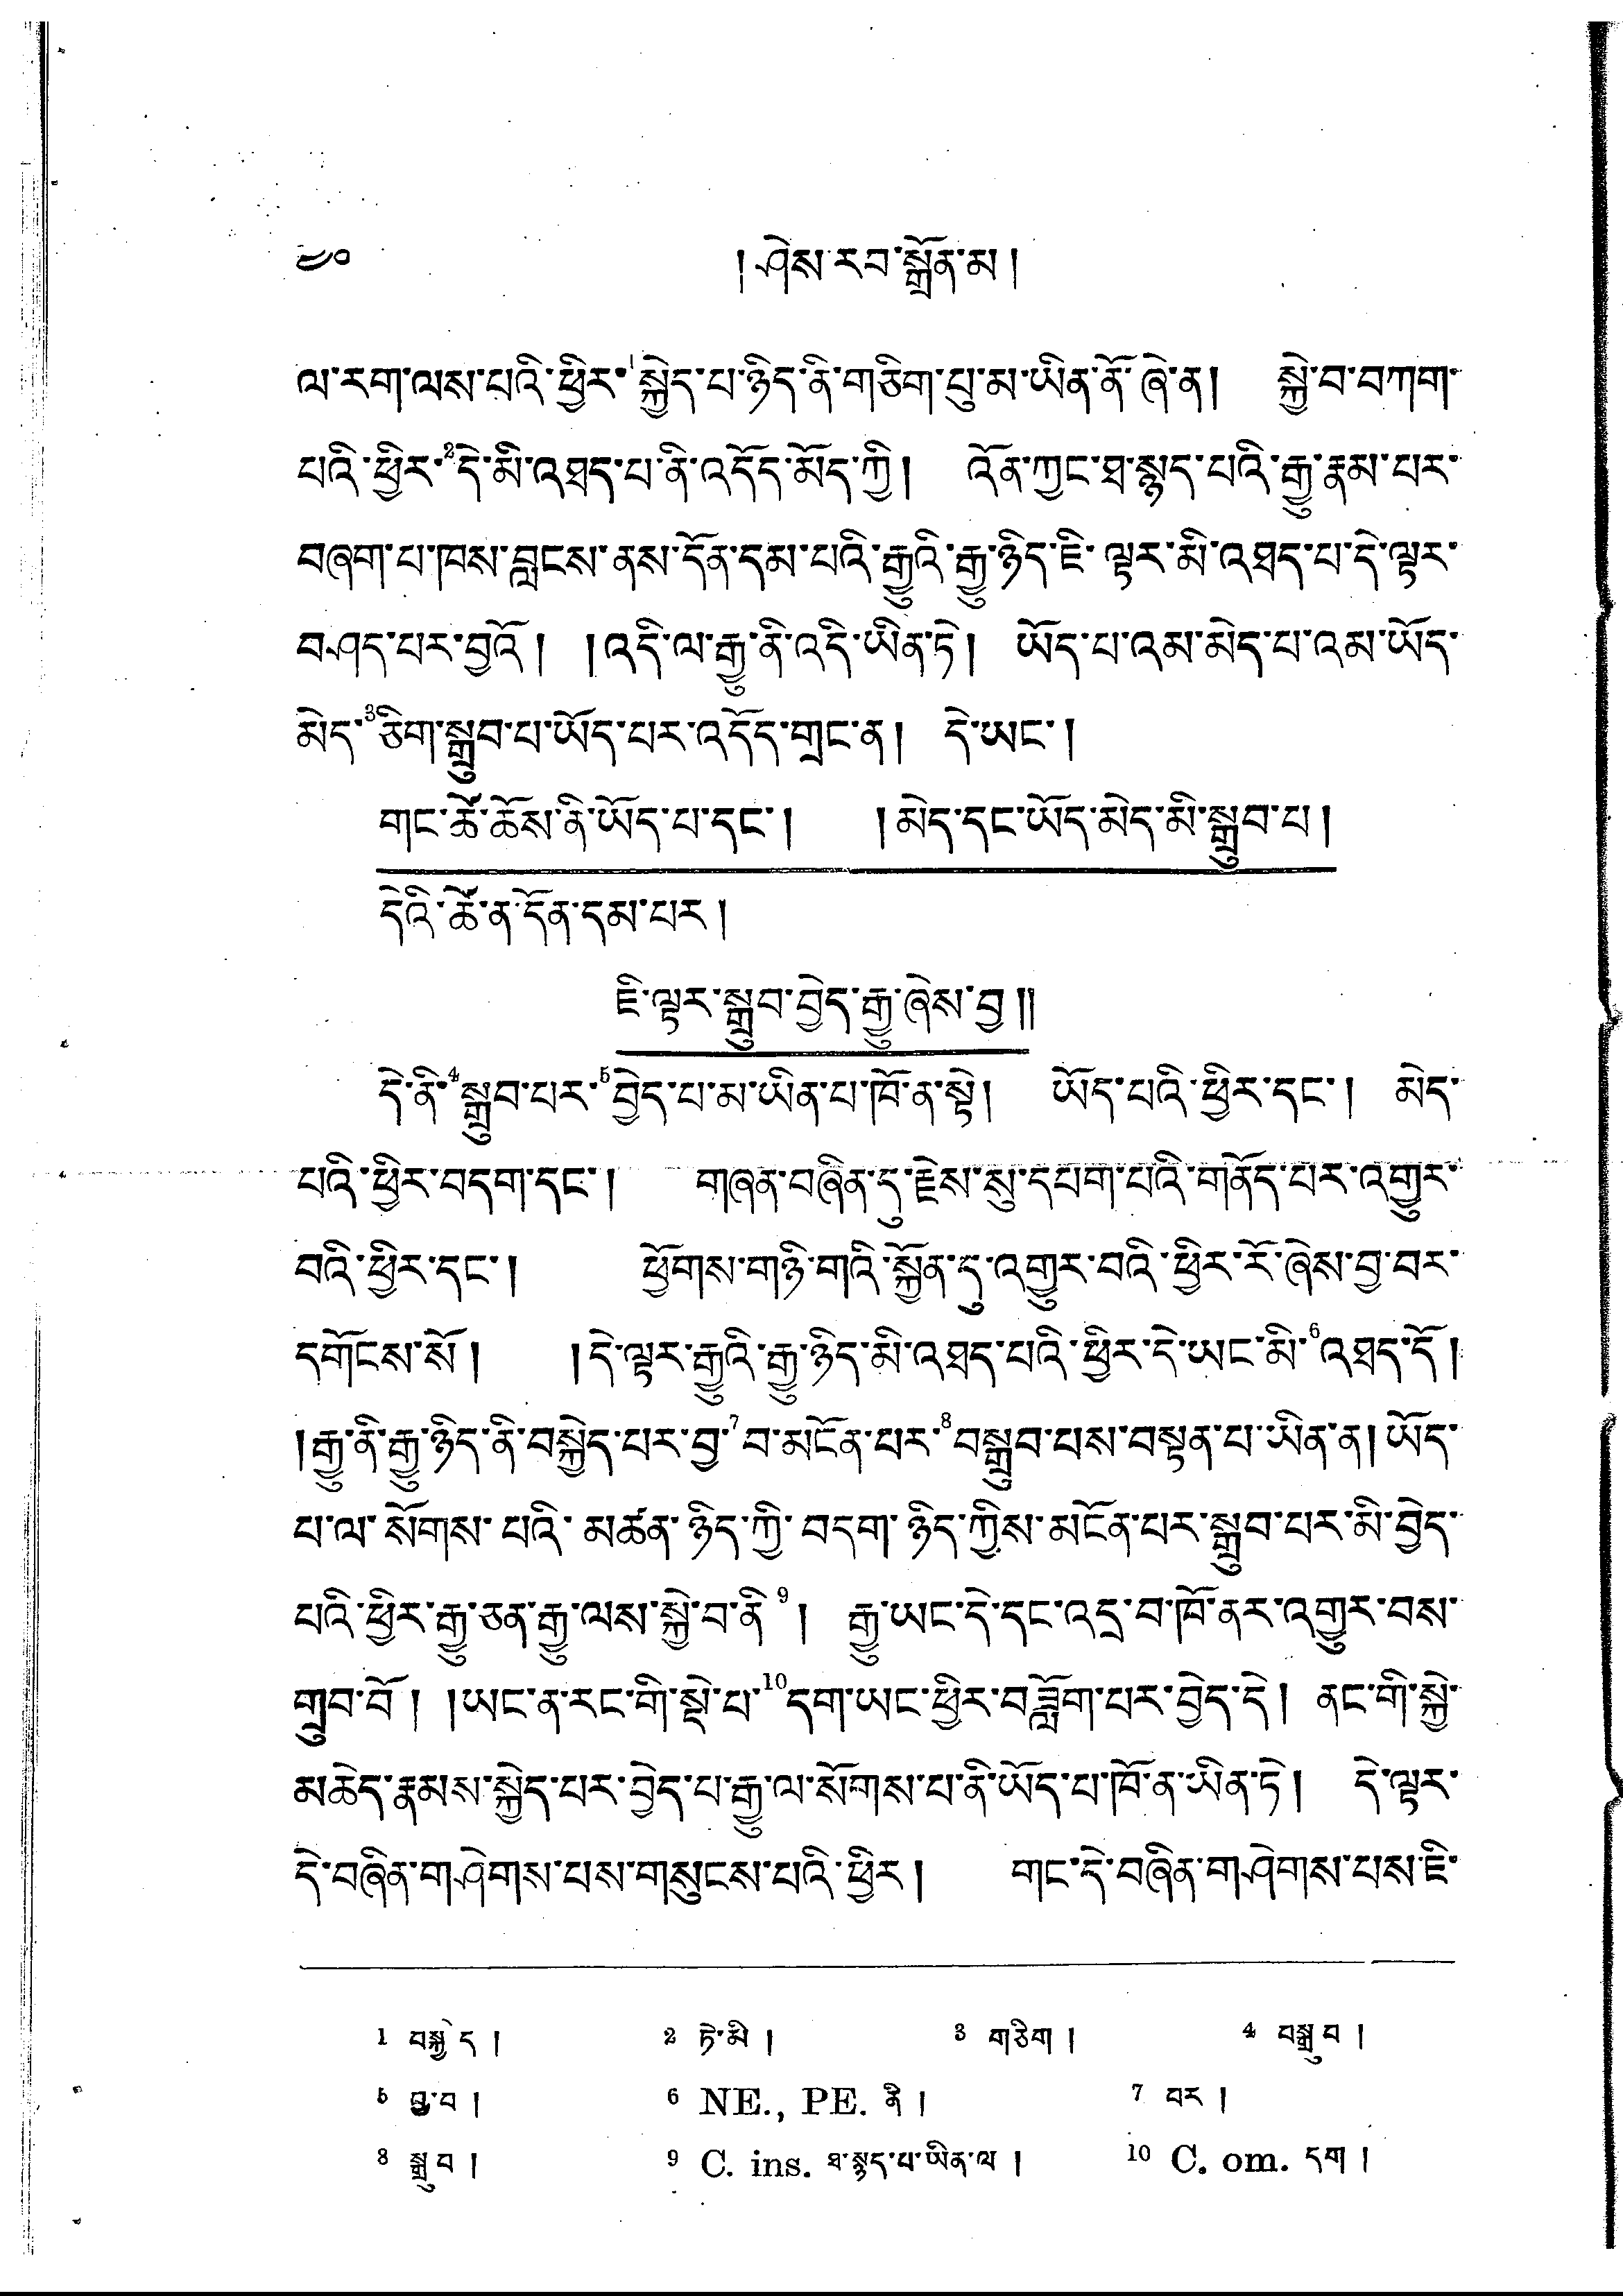 ༧༠ །ཤེས་རབ་སྒྲོན་མ།
ལ་རག་ལས་པའི་ཕྱིར་1སྐྱེད་པ་ཉིད་ནི་གཅིག་པུ་མ་ཡིན་ནོ་ཞེ་ན། སྐྱེ་བ་བཀག་
པའི་ཕྱིར་2དེ་མི་འཐད་པ་ནི་འདོད་མོད་ཀྱི། འོན་ཀྱང་ཐ་སྙད་པའི་རྒྱུ་རྣམ་པར་
བཞག་པ་ཁས་བླངས་ནས་དོན་དམ་པའི་རྒྱུའི་རྒྱུ་ཉིད་ཇི་ལྟར་མི་འཐད་པ་དེ་ལྟར་
བཤད་པར་བྱའོ། །འདི་ལ་རྒྱུ་ནི་འདི་ཡིན་ཏེ། ཡོད་པ་འམ་མེད་པ་འམ་ཡོད་
མེད་3ཅིག་སྒྲུབ་པ་ཡོད་པར་འདོད་གྲང་ན། དེ་ཡང་།
གང་ཚེ་ཆོས་ནི་ཡོད་པ་དང་། །མེད་དང་ཡོད་མེད་མི་སྒྲུབ་པ།
དེའི་ཚེ་ན་དོན་དམ་པར།
ཇི་ལྟར་སྒྲུབ་བྱེད་རྒྱུ་ཞེས་བྱ།།
དེ་ནི་4སྒྲུབ་པར་5བྱེད་པ་མ་ཡིན་པ་ཁོ་ན་སྟེ། ཡོད་པའི་ཕྱིར་དང་། མེད་
པའི་ཕྱིར་བདག་དང་། གཞན་བཞིན་དུ་རྗེས་སུ་དཔག་པའི་གནོད་པར་འགྱུར་
བའི་ཕྱིར་དང་། ཕྱོགས་གཉི་གའི་སྐྱོན་དུ་འགྱུར་བའི་ཕྱིར་རོ་ཞེས་བྱ་བར་
དགོངས་སོ། །དེ་ལྟར་རྒྱུའི་རྒྱུ་ཉིད་མི་འཐད་པའི་ཕྱིར་དེ་ཡང་མི་6འཐད་དོ།
།རྒྱུ་ནི་རྒྱུ་ཉིད་ནི་བསྐྱེད་པར་བྱ་7བ་མངོན་པར་8བསྒྲུབ་པས་བསྟན་པ་ཡིན་ན། ཡོད་
པ་ལ་སོགས་པའི་མཚན་ཉིད་ཀྱི་བདག་ཉིད་ཀྱིས་མངོན་པར་སྒྲུབ་པར་མི་བྱེད་
པའི་ཕྱིར་རྒྱུ་ཅན་རྒྱུ་ལས་སྐྱེ་བ་ནི9། རྒྱུ་ཡང་དེ་དང་འདྲ་བ་ཁོ་ནར་འགྱུར་བས་
གྲུབ་བོ། །ཡང་ན་རང་གི་སྡེ་པ་10དག་ཡང་ཕྱིར་བཟློག་པར་བྱེད་དེ། ནང་གི་སྐྱེ་
མཆེད་རྣམས་སྐྱེད་པར་བྱེད་པ་རྒྱུ་ལ་སོགས་པ་ནི་ཡོད་པ་ཁོ་ན་ཡིན་ཏེ། དེ་ལྟར་
དེ་བཞིན་གཤེགས་པས་གསུངས་པའི་ཕྱིར། གང་དེ་བཞིན་གཤེགས་པས་ཇི་
1 བསྐྱེད། 2 ཏེ་མི། 3 གཅིག། 4 བསྒྲུབ།
5 བྱ་བ། 6 NE., PE. ནི། 7 བར།
8 སྒྲུབ། 9 C. ins. ཐ་སྙད་པ་ཡིན་ལ། 10 C. om. དག།